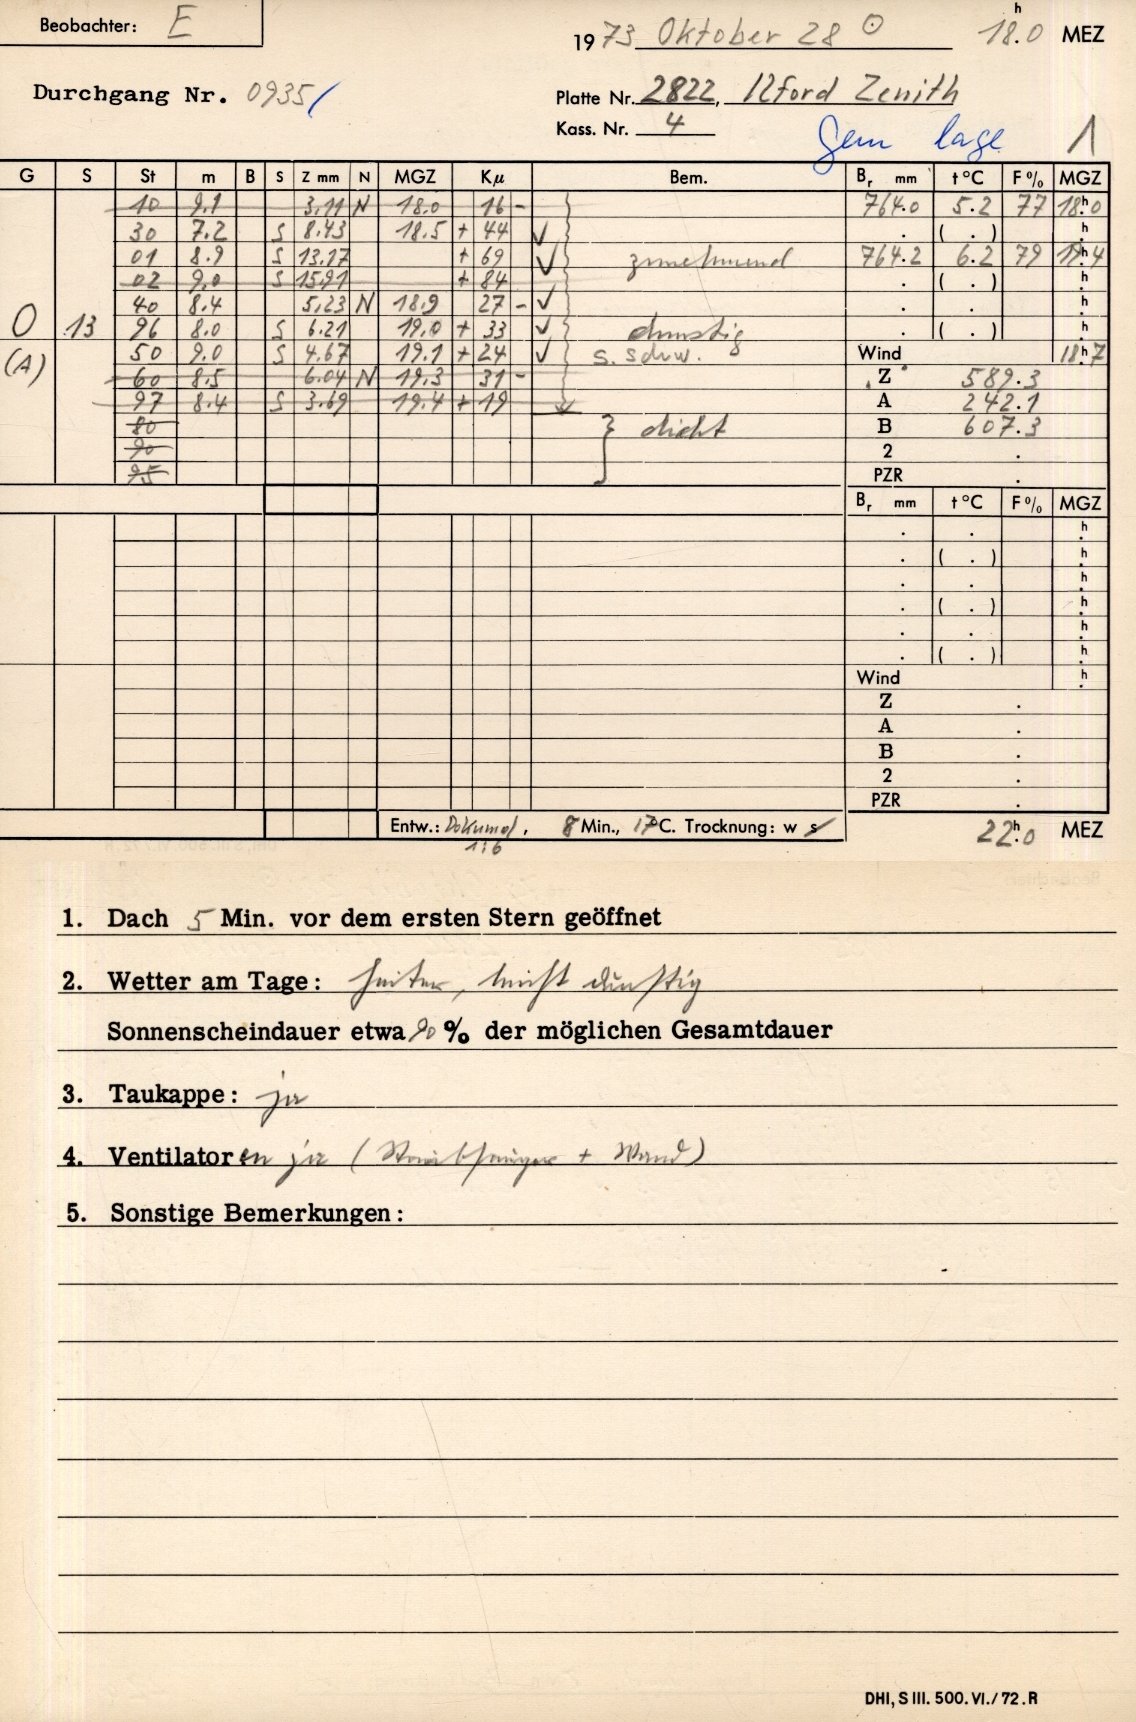 Beobachter: E
1973 Oktober 28 ☉ 18.0 h MEZ
Durchgang Nr. 0935/
Platte Nr. 2822, Ilford Zenith
Kass. Nr. 4
Gem lage 1
G S St m B S Z mm N MGZ Kμ Bem. Br mm t °C F % MGZ
10 9.1 3.11 N 18.0 16 - 764.0 5.2 77 18h.0
30 7.2 S 8.43 18.5 + 44 ✓ . ( . ) h.
01 8.9 S 13.17 + 69 ✓ zunehmend 764.2 6.2 79 19h.4
02 9.0 S 15.91 + 84 . ( . ) h.
40 8.4 5.23 N 18.9 27 - ✓ . . h.
0 13 96 8.0 S 6.21 19.0 + 33 ✓ dunstig . ( . ) h.
(A) 50 9.0 S 4.67 19.1 + 24 ✓ s. schw. Wind 18h.7
60 8.5 6.04 N 19.3 31 - Z 589.3
97 8.4 S 3.69 19.4 + 19 A 242.1
80 } dicht B 607.3
90 2 .
95 PZR .
Br mm t °C F % MGZ
. . h.
. ( . ) h.
. . h.
. ( . ) h.
. . h.
. ( . ) h.
Wind h.
Z .
A .
B .
2 .
PZR .
Entw.: Dokumol, 8 Min., 17°C. Trocknung: w s
1:6
22h.0 MEZ
1. Dach 5 Min. vor dem ersten Stern geöffnet
2. Wetter am Tage: heiter, leicht dunstig
Sonnenscheindauer etwa 90 % der möglichen Gesamtdauer
3. Taukappe: ja
4. Ventilatoren ja ( + Wand)
5. Sonstige Bemerkungen:
DHI, S III. 500. VI./72. R